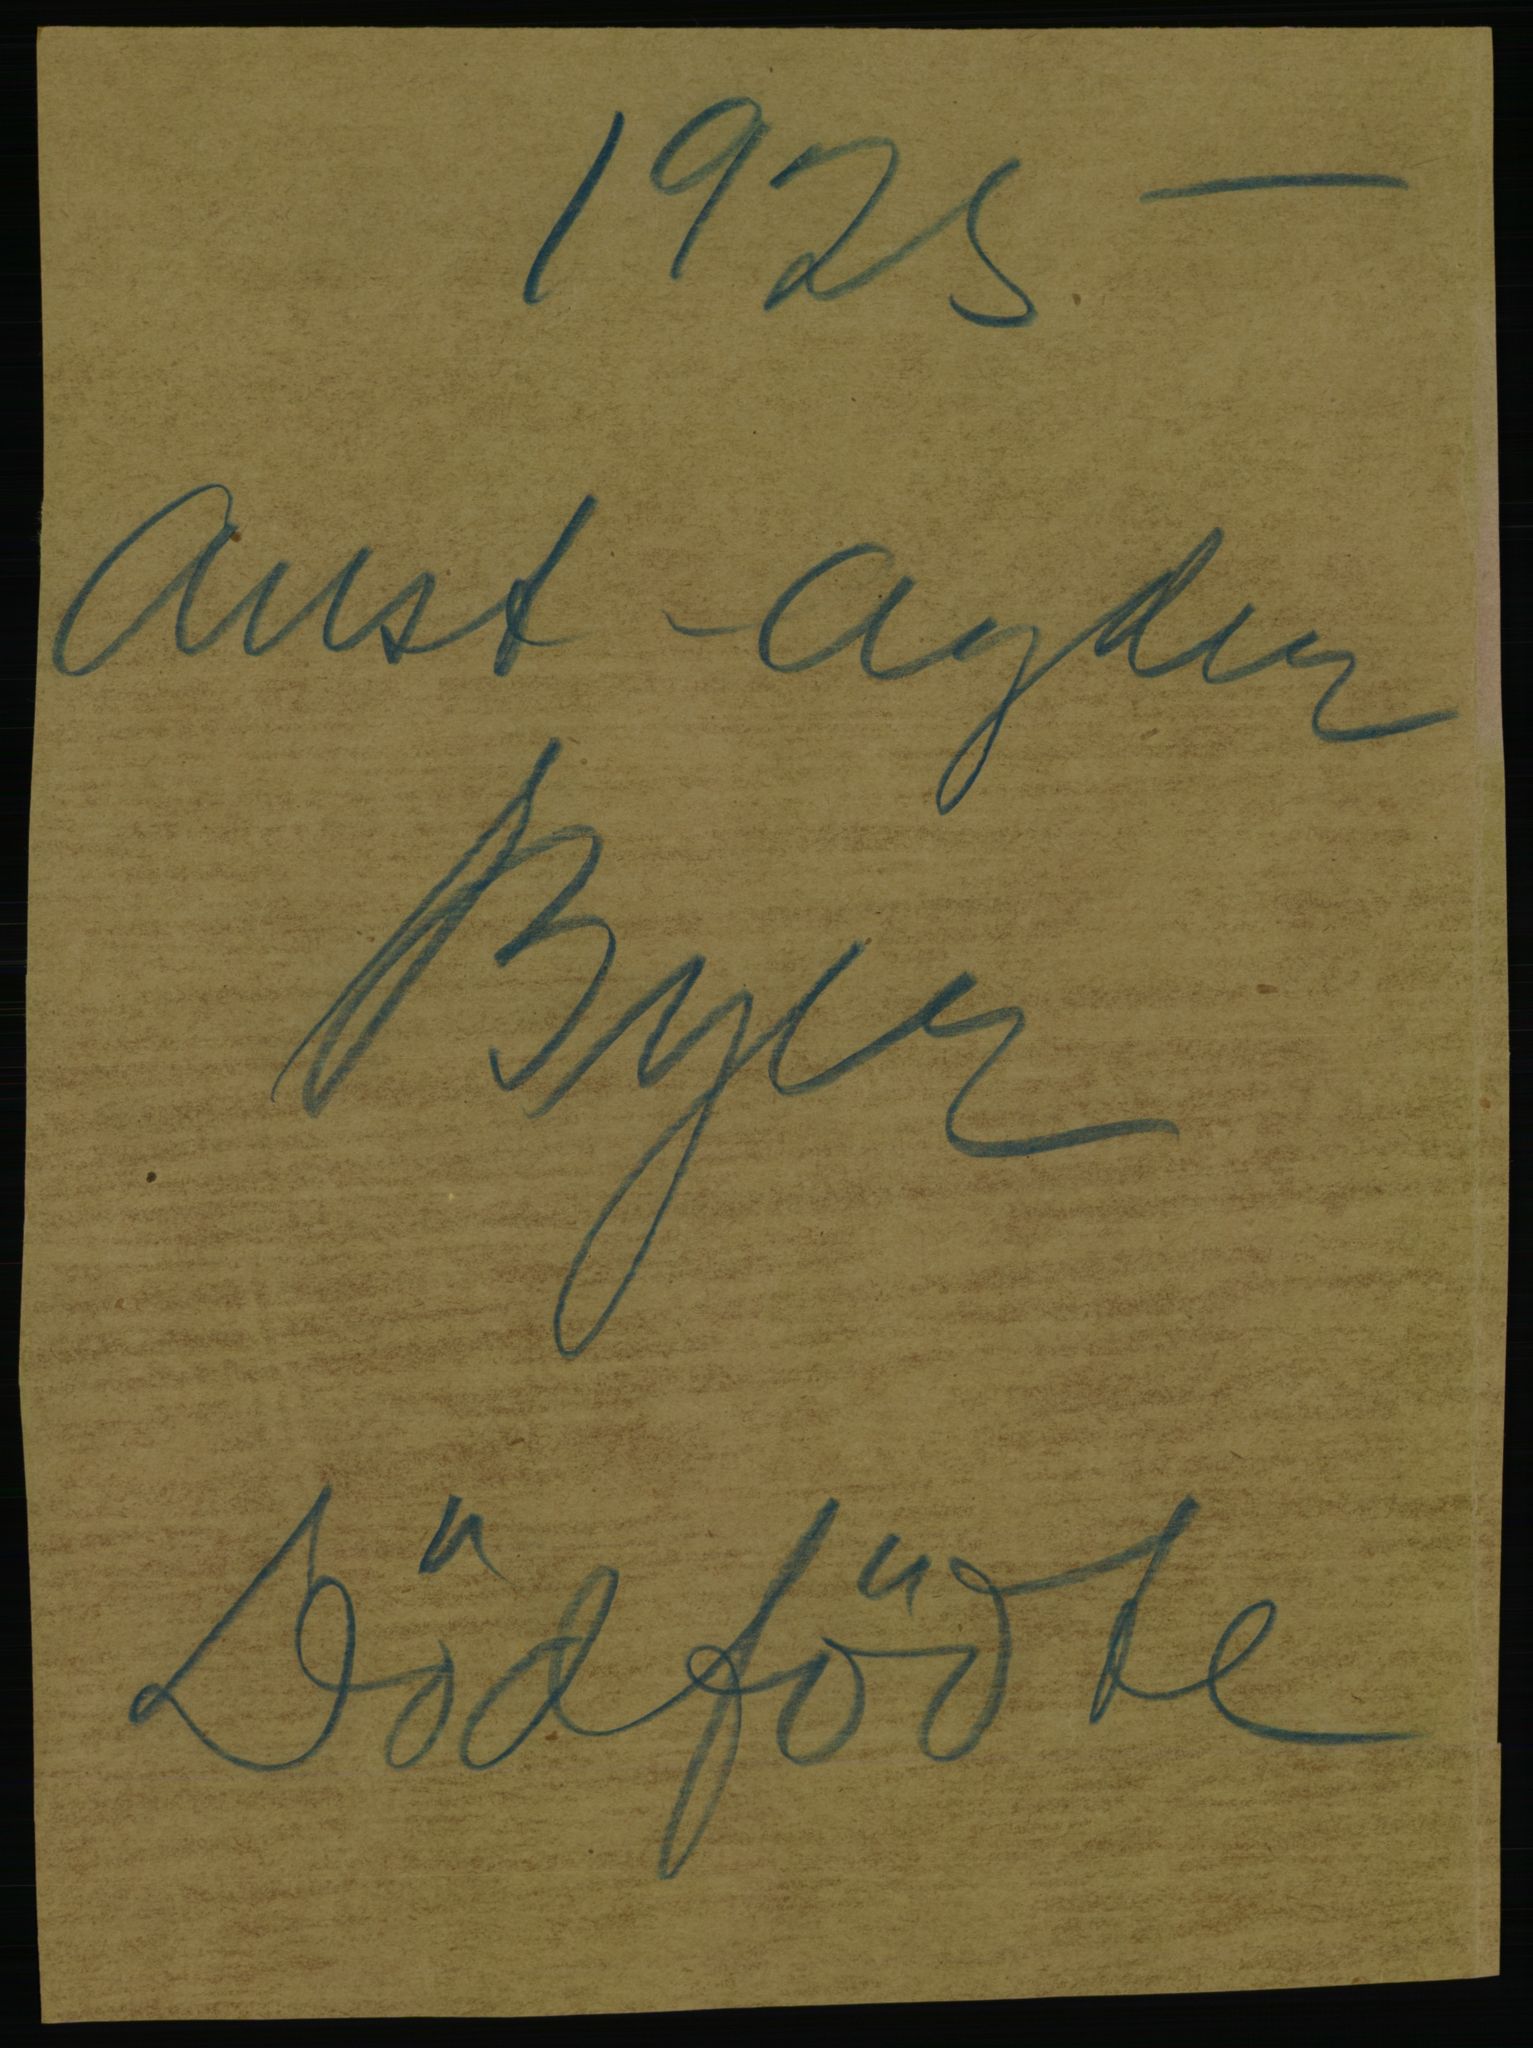 1925 —
Aust-Agder
Byer
Dödfödte